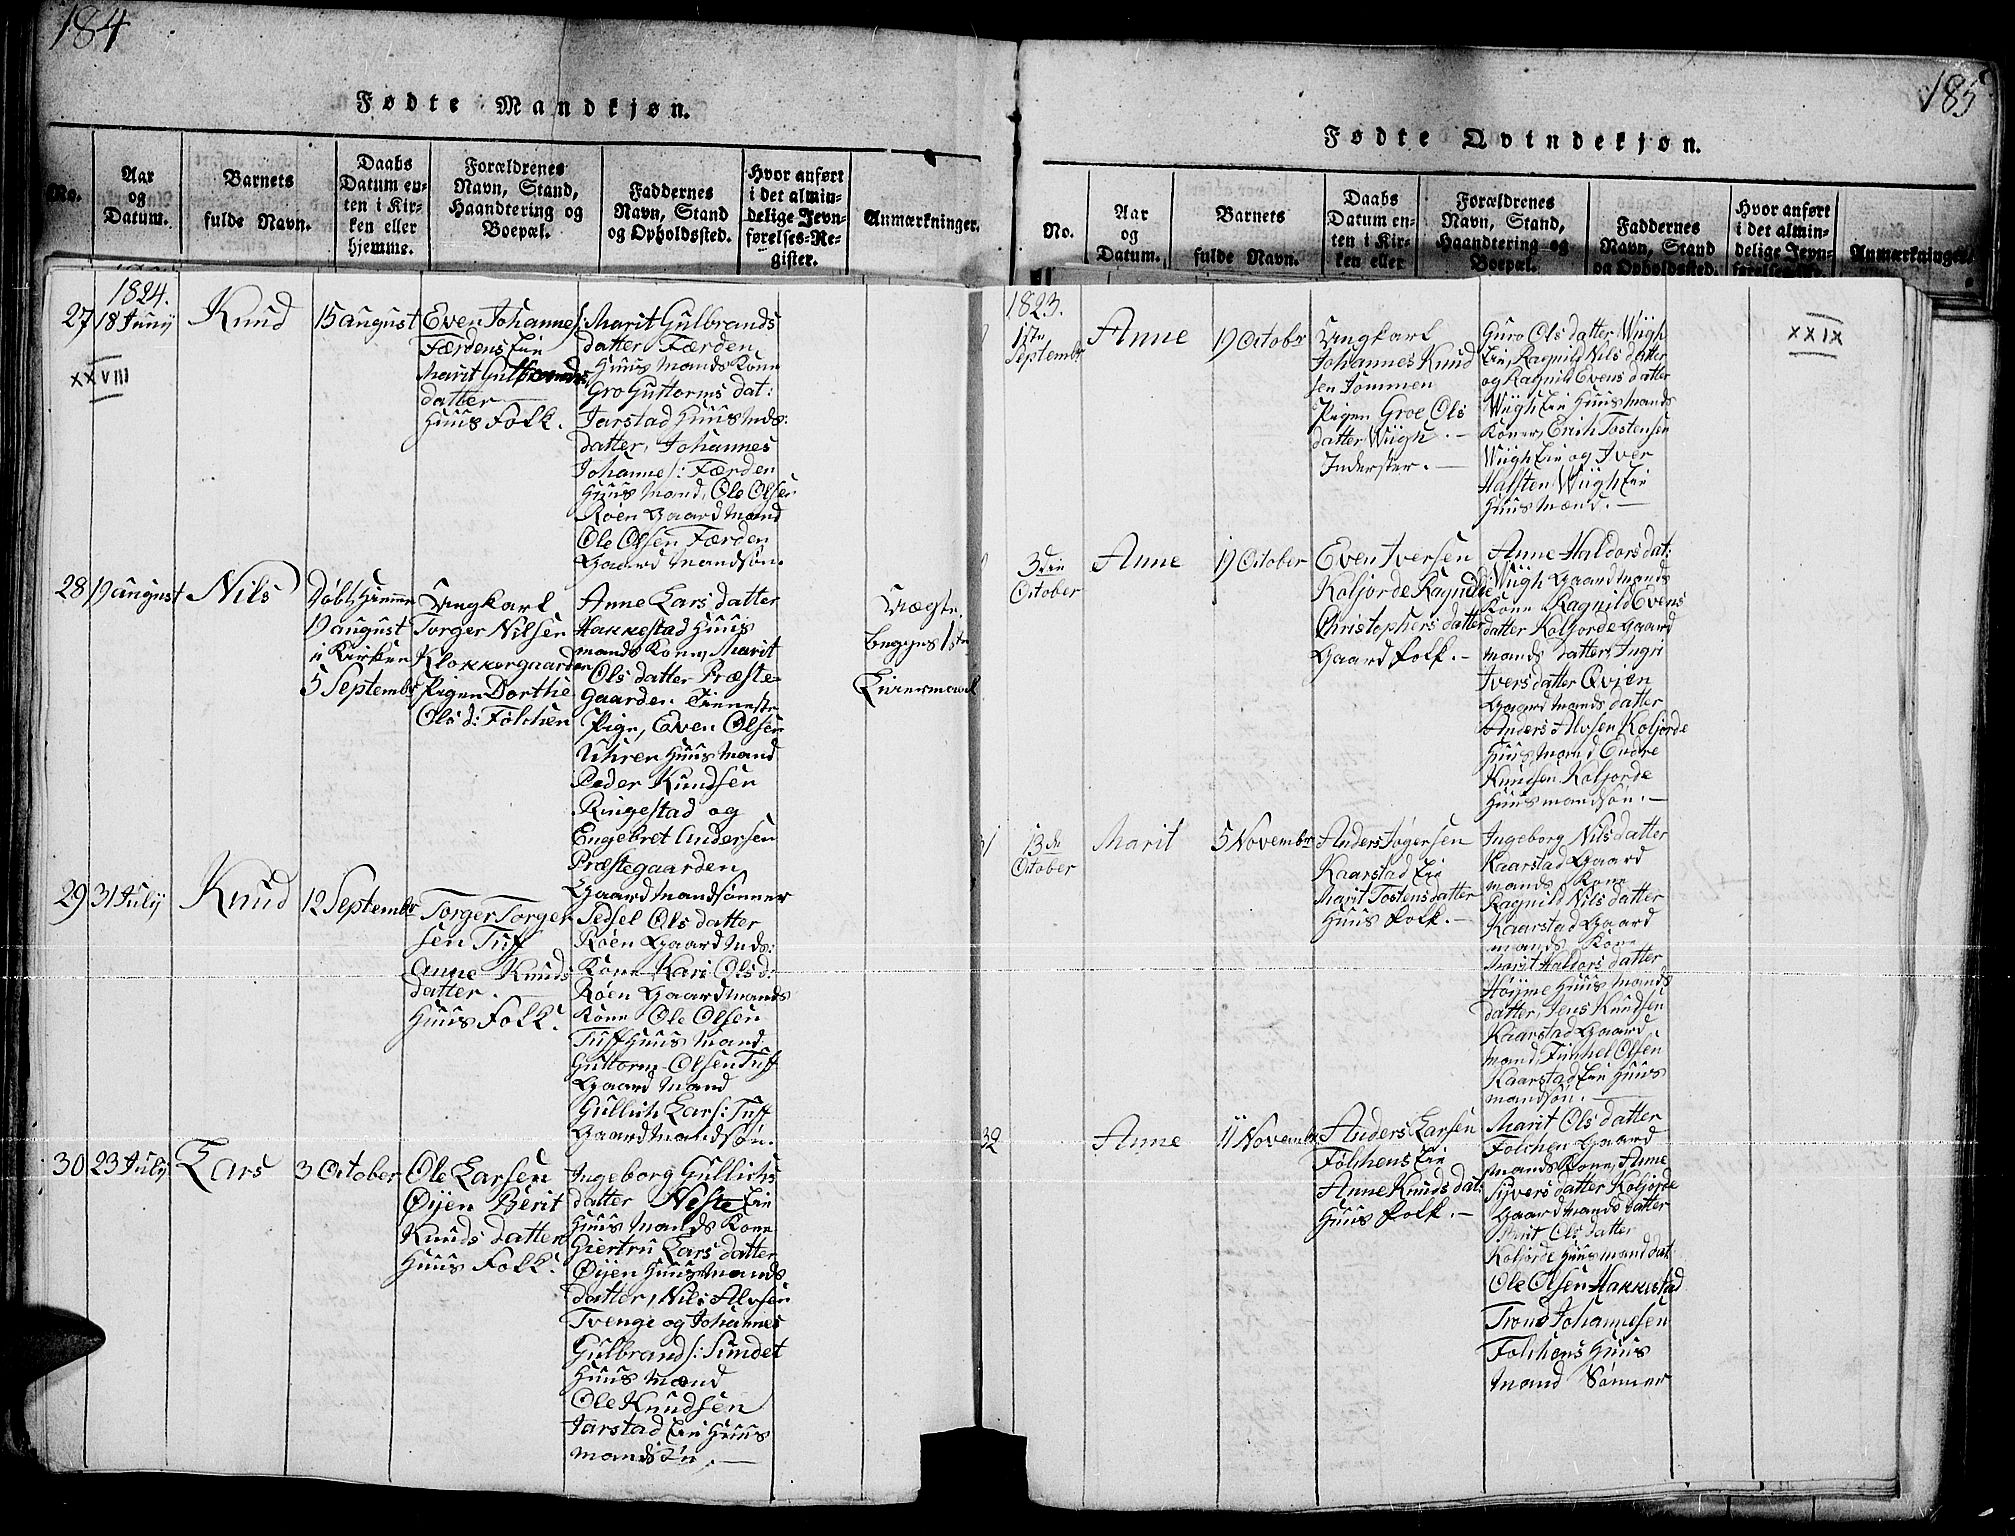 184
Fødte Mandkjøn.
No.
Aar
og
Datum.
Barnets
fulde Navn.
Daabs
Datum en-
ten i Kir-
ken eller
hjemme.
Forældrenes
Navn, Stand,
Haandtering og
Boepæl.
Faddernes
Navn, Stand
og Opholdssted.
Hvor anført
i det almin-
delige Jevn-
førelses-Re-
gister.
Anmærkninger.
1824.
27
18 Juny
XXVIII
Knud
15 august
Even Johannes/:
Færdens Eie
Marit Gulbrands
datter
Huus Folk.
Marit Gulbrands
datter Færden
Huus Mands Kone
Gro Guttorms dat:
Jarstad Huus Mds:
datter, Johannes
Johannes/: Færden
Huus Mand, Ole Olsen
Röen Gaard Mand
Ole Olsen Færden
Gaard Mandsøn.
28
19 august
Nils
Døbt Hiemme
19 august
i Kirken
5 Septembr
Ungkarl
Torger Nilsen
Klokkergaarden
Pigen Dorthe
Ols d: Fölchen
Anne Lars datter
Hakkestad Huus
mands Kone, Marit
Ols datter Præste-
Gaarden Tieneste
Pige, Even Olsen
Uhren Huus Mand
Peder Knudsen
Ringestad og
Engebret Andersen
Præstegaarden
Gaard Mandsønner
begges 1ste
Leiermaal
29
31 July
Knud
12 Septembr
Torger Torger
sen Tuff
Anne Knuds
datter.
Huus Folk.
Sedsel Ols datter
Röen Gaard Mds:
Kone Kari Ols d:
Röen Gaardmands
Kone Ole Olsen
Tuff Huus Mand
Guttorm Olsen Tuff
Gaard Mand
Gullich Lars/: Tuff
Gaard Mandsøn.
30
23 July
Lars
3 October
Ole Larsen
Øijen Berit
Knuds datter
Huus Folk.
Ingeborg Gullichs
datter Neste Eie
Huus Mands Kone
Giertru Lars datter
Øijen Huus Mands
datter, Nils Alvsen
Tvenge og Johannes
Gulbrands/: Sundet
Huus Mænd
Ole Knudsen
Jarstad Eie Huus
mandsøn.
185
Fødte Qvindekjøn.
No.
Aar
og
Datum.
Barnets
fulde Navn.
Daabs
Datum en-
ten i Kir-
ken eller
Forældrenes
Navn, Stand,
Haandtering og
Boepæl.
Faddernes
Navn, Stand
og Opholdssted.
Hvor anført
i det almin-
delige Jevn-
førelses-Re-
Anmærkninger.
1823.
17de
Septembr
Anne
19 Octobr
Ungkarl
Johannes Knud
sen Tommen
Pigen Groe Ols
datter Wiigh.
Inderster.
Guro Ols datter Wiigh
Eie, Ragnild Nils datter
og Ragnild Evens datter
Wiigh Eie Huus Mands
Koner, Erich Tostensen
Wiigh Eie og Iver
Halsten Wiigh Eie
Huus Mænd.
XXIX
3die
October
Anne
19 October
Even Iversen
Koljorde Ragnilde
Christophers datter
Gaard Folk.
Anne Haldors dat:
Wiigh Gaard Mands
Kone Ragnild Evens
datter Koljorde Gaard
mands datter, Ingri
Ivers datter Qvien
Gaard Mands datter
Anders Alvsen Koljorde
Huus Mand Endre
Knudsen Koljorde
Huus mandsøn.
31
13de
October
Marit
5 Novembr
Anders Torgersen
Kaarstad Eie
Marit Tostens datter
Huus Folk.
Ingeborg Nilsdatter
Kaarstad Gaard
mands Kone
Ragnild Nils datter
Kaarstad Gaard
mands Kone
Marit Haldors datter
Höyme Huus Mands
datter, Jens Knudsen
Kaarstad Gaard
mand, Finchel Olsen
Kaarstad Eie Huus
mandsøn.
32
Anne
11 Novembr
Anders Larsen
Fölchens Eie
Anne Knuds dat:
Huus Folk.
Marit Ols datter
Folchen Gaard
mands Kone, Anne
Syvers datter Koljorde
Gaard Mands datter
Marit Ols datter
Koljorde Huus mand dat
Ole Olsen Hakkestad
Trond Johannesen
Folchens Huus
mand Sönner